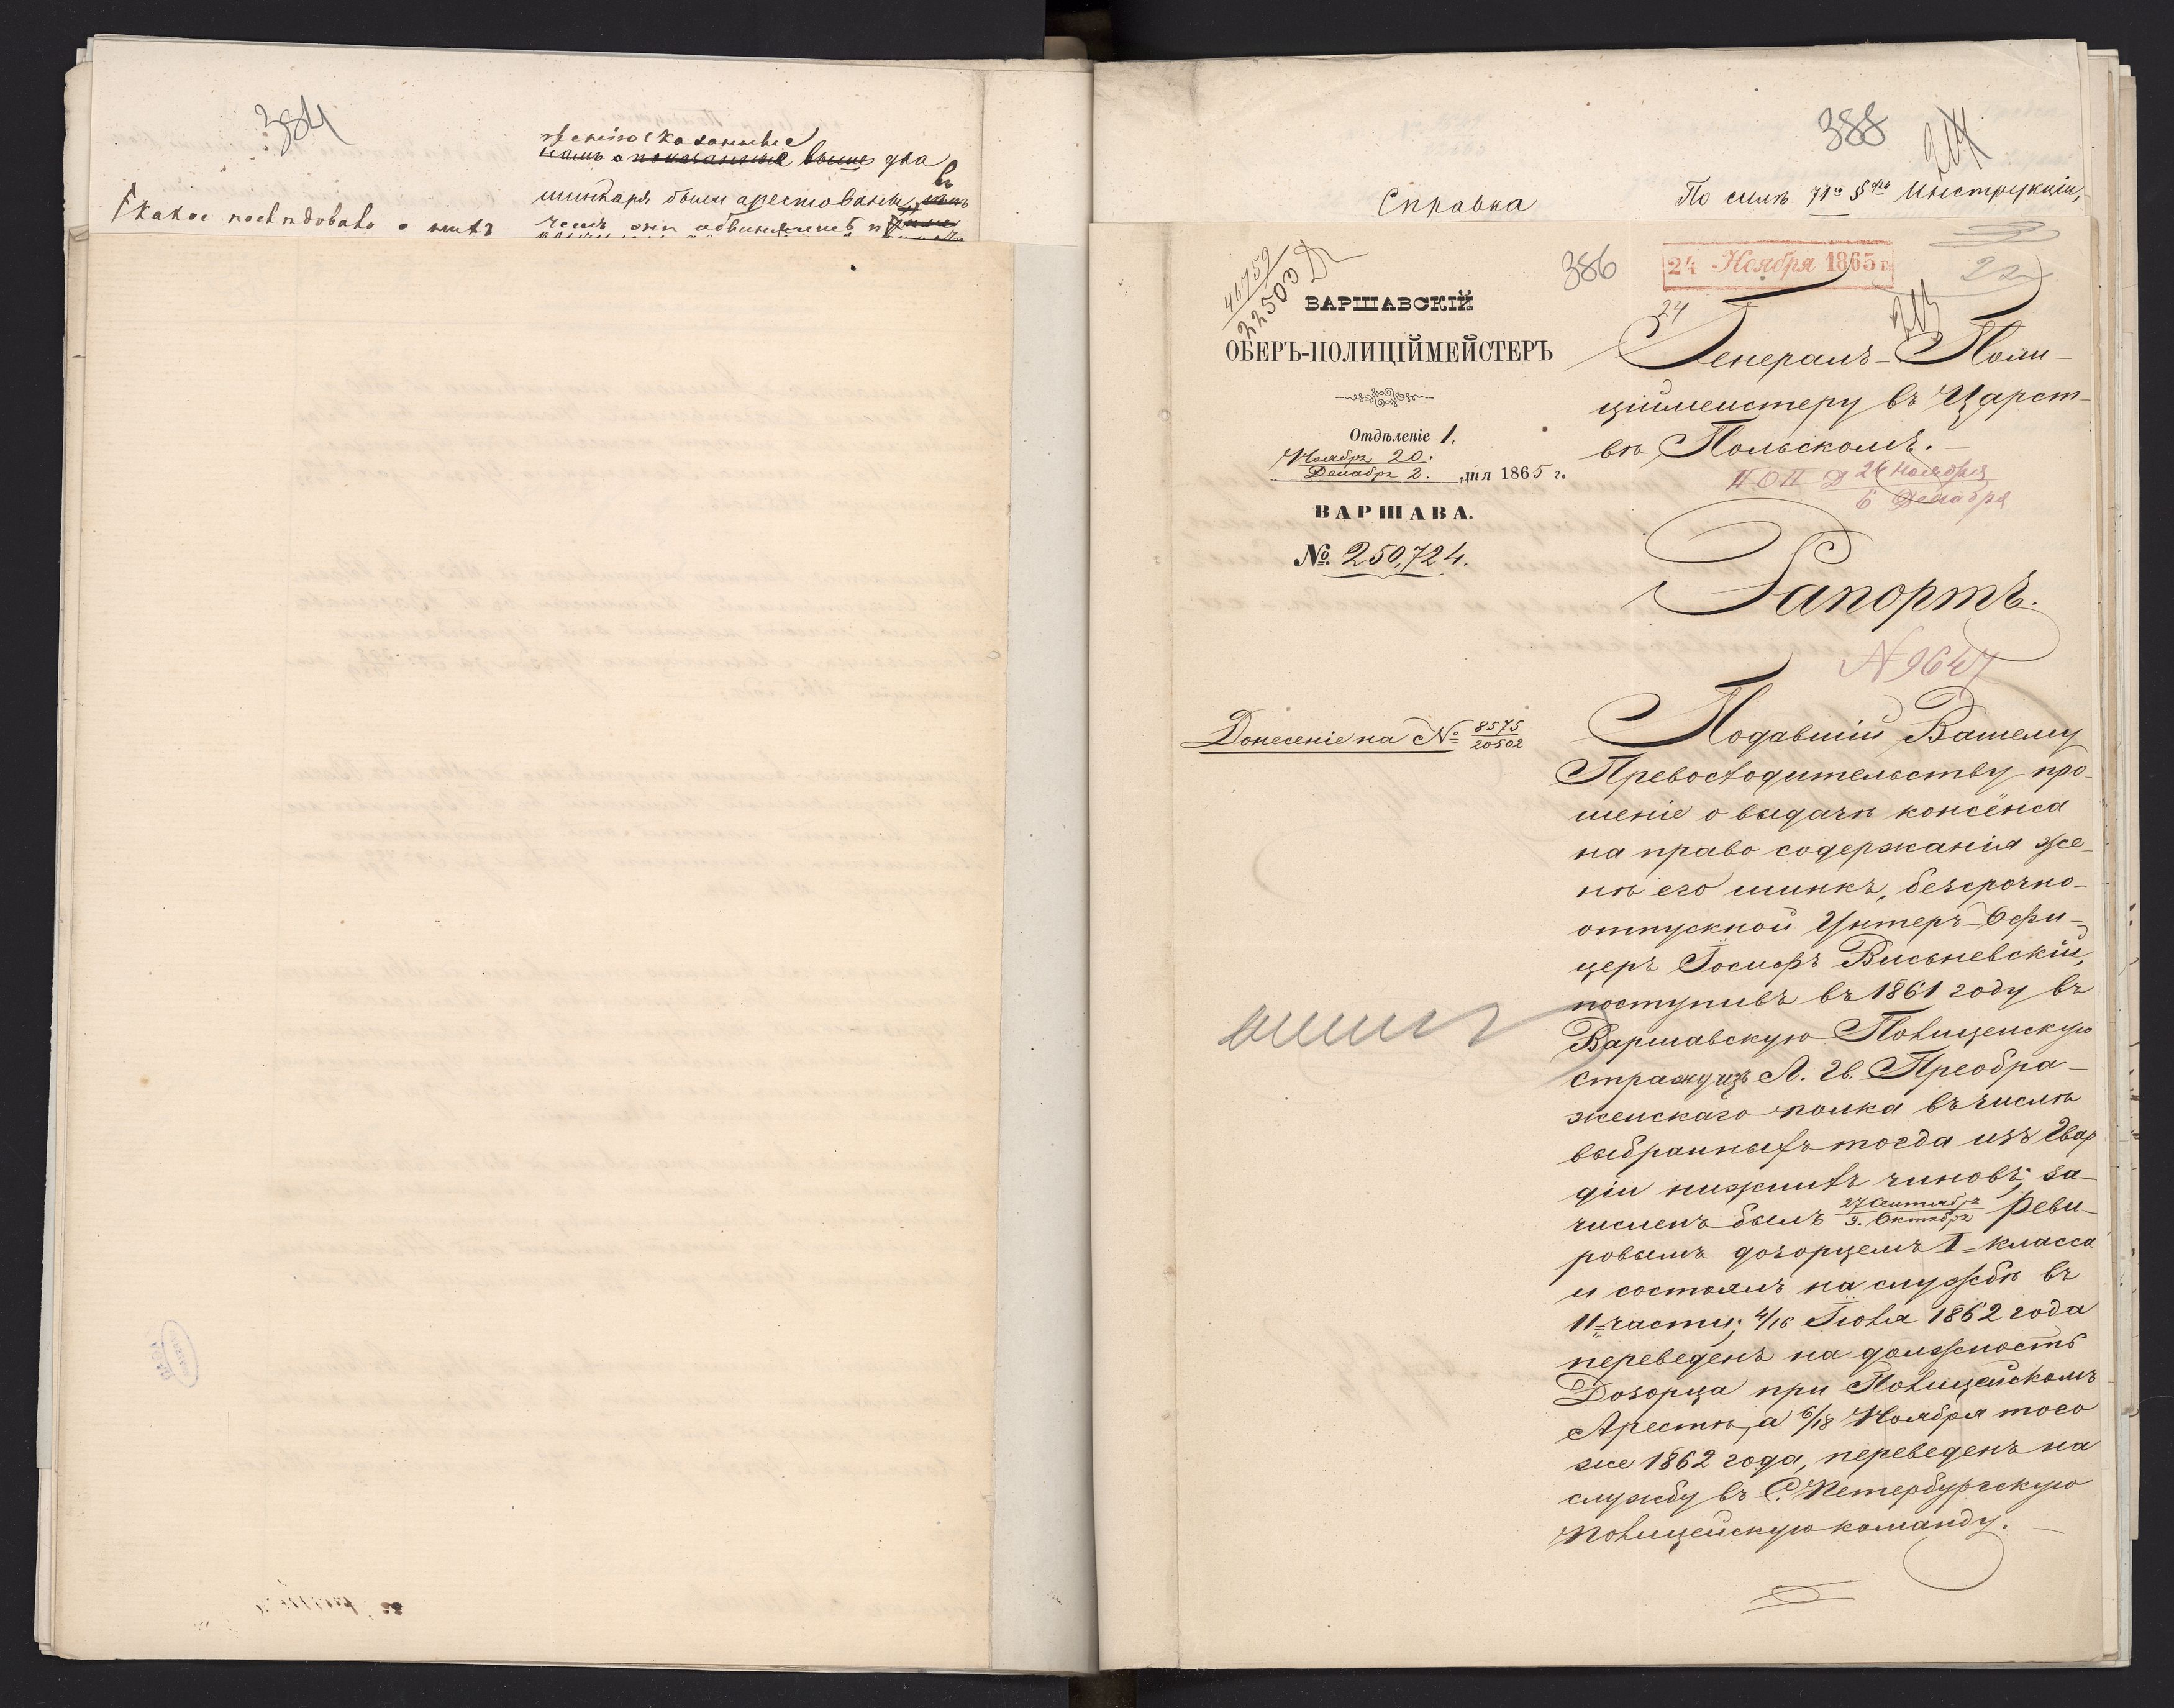 384
два
шинкаря были арестованы, въ
какое последовало о нихъ
чемъ они обвиняются и
388
Справка
По силѣ 71го § Инструкціи,
46759
22503
386
24 Ноября 1865 г.
22
ВАРШАВСКІЙ
ОБЕРЪ-ПОЛИЦІЙМЕЙСТЕРЪ
Отдѣленіе 1.
Ноября 20.
Декабря 2. дня 1865 г.
ВАРШАВА.
№ 250,724.
24
Генералъ-Поли-
ціймейстеру въ Царст-
вѣ Польскомъ.
24 Ноября
6 Декабря
Рапортъ.
N 9647
Донесеніе на № 8575
20502
Подавшій Вашему
Превосходительству про-
шеніе о выдачѣ консенса
на право содержанія же-
нѣ его шинка, безсрочно-
отпускной Унтеръ-Офи-
церъ Іосифъ Висьневскій,
поступивъ въ 1861 году въ
Варшавскую Полицейскую
стражу изъ Л. Гв. Преобра-
женскаго полка въ числѣ
выбранныхъ тогда изъ Гвар
діи нижнихъ чиновъ, за-
численъ былъ 27 Сентября
9. Октября Реви-
ровымъ дозорцемъ I класса
и состоялъ на службѣ въ
11 части; 4/16 Іюля 1862 года
переведенъ на должность
Дозорца при Полицейскомъ
Арестѣ, а 6/18 Ноября того
же 1862 года, переведенъ на
службу въ С. Петербургскую
Полицейскую команду.